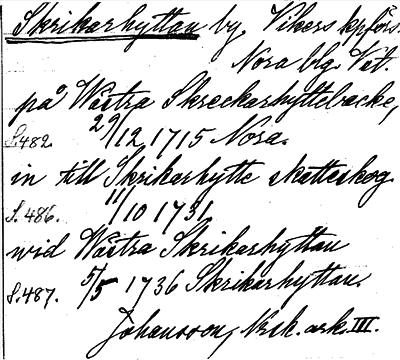 Skrikarhyttan by, Vikers kpförs.
Nora blg. Vet.
på Wästra Skreckarhyttebacke,
S.482. 29/12 1715 Nora.
in till Skrikarhytte skatteskog
S.486. 11/10 1731.
wid Wästra Skrikarhyttan
S.487. 5/5 1736 Skrikarhyttan.
Johansson, Nrk. ark. III.